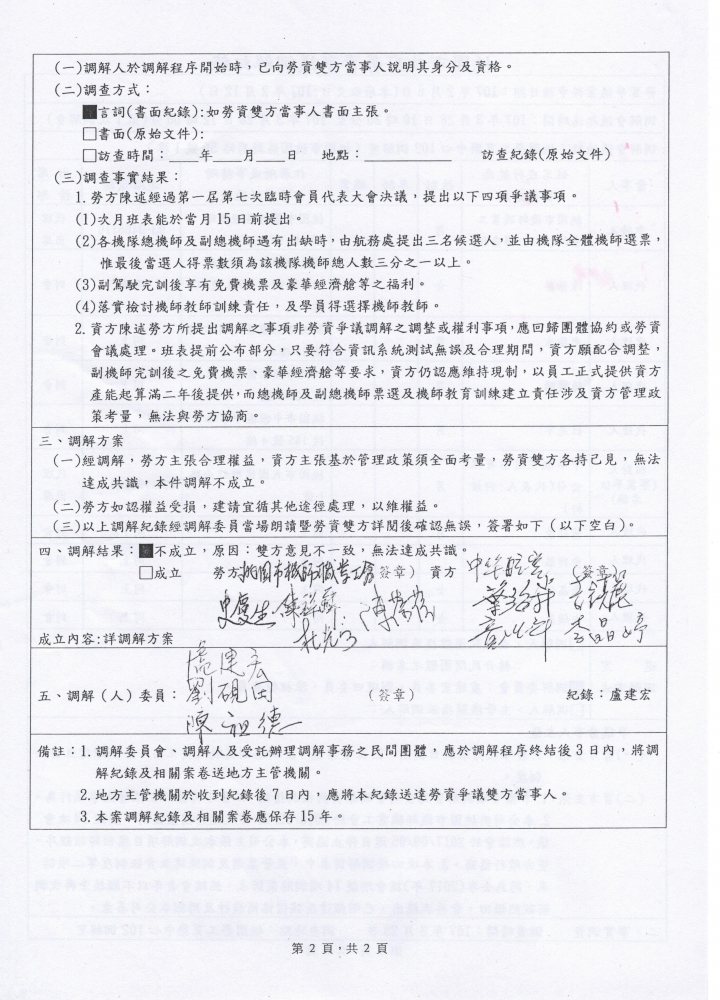 (一)調解人於調解程序開始時，已向勞資雙方當事人說明其身分及資格。
(二)調查方式：
■言詞(書面紀錄):如勞資雙方當事人書面主張。
□書面(原始文件):
□訪查時間：____年___月___日 地點：__________ 訪查紀錄(原始文件)
(三)調查事實結果：
1.勞方陳述經過第一屆第七次臨時會員代表大會決議，提出以下四項爭議事項。
(1)次月班表能於當月15日前提出。
(2)各機隊總機師及副總機師遇有出缺時,由航務處提出三名候選人,並由機隊全體機師選票，
惟最後當選人得票數須為該機隊機師總人數三分之一以上。
(3)副駕駛完訓後享有免費機票及豪華經濟艙等之福利。
(4)落實檢討機師教師訓練責任，及學員得選擇機師教師。
2.資方陳述勞方所提出調解之事項非勞資爭議調解之調整或權利事項,應回歸團體協約或勞資
會議處理。班表提前公布部分，只要符合資訊系統測試無誤及合理期間，資方願配合調整，
副機師完訓後之免費機票、豪華經濟艙等要求，資方仍認應維持現制，以員工正式提供資方
產能起算滿二年後提供,而總機師及副總機師票選及機師教育訓練建立責任涉及資方管理政
策考量，無法與勞方協商。
三、調解方案
(一)經調解，勞方主張合理權益，資方主張基於管理政策須全面考量，勞資雙方各持己見，無法
達成共識，本件調解不成立。
(二)勞方如認權益受損，建請宜循其他途徑處理，以維權益。
(三)以上調解紀錄經調解委員當場朗讀暨勞資雙方詳閱後確認無誤，簽署如下（以下空白）。
四、調解結果：■不成立，原因：雙方意見不一致，無法達成共識。
□成立 勞方 桃園市機師職業工會 (簽章) 資方 中華航空 (簽章)
成立內容:詳調解方案
盧建宏
劉硯田
五、調解（人）委員： (簽章) 紀錄：盧建宏
陳祖德
備註：1.調解委員會、調解人及受託辦理調解事務之民間團體，應於調解程序終結後3日內，將調
解紀錄及相關案卷送地方主管機關。
2.地方主管機關於收到紀錄後7日內，應將本紀錄送達勞資爭議雙方當事人。
3.本案調解紀錄及相關案卷應保存15年。
第2頁，共2頁